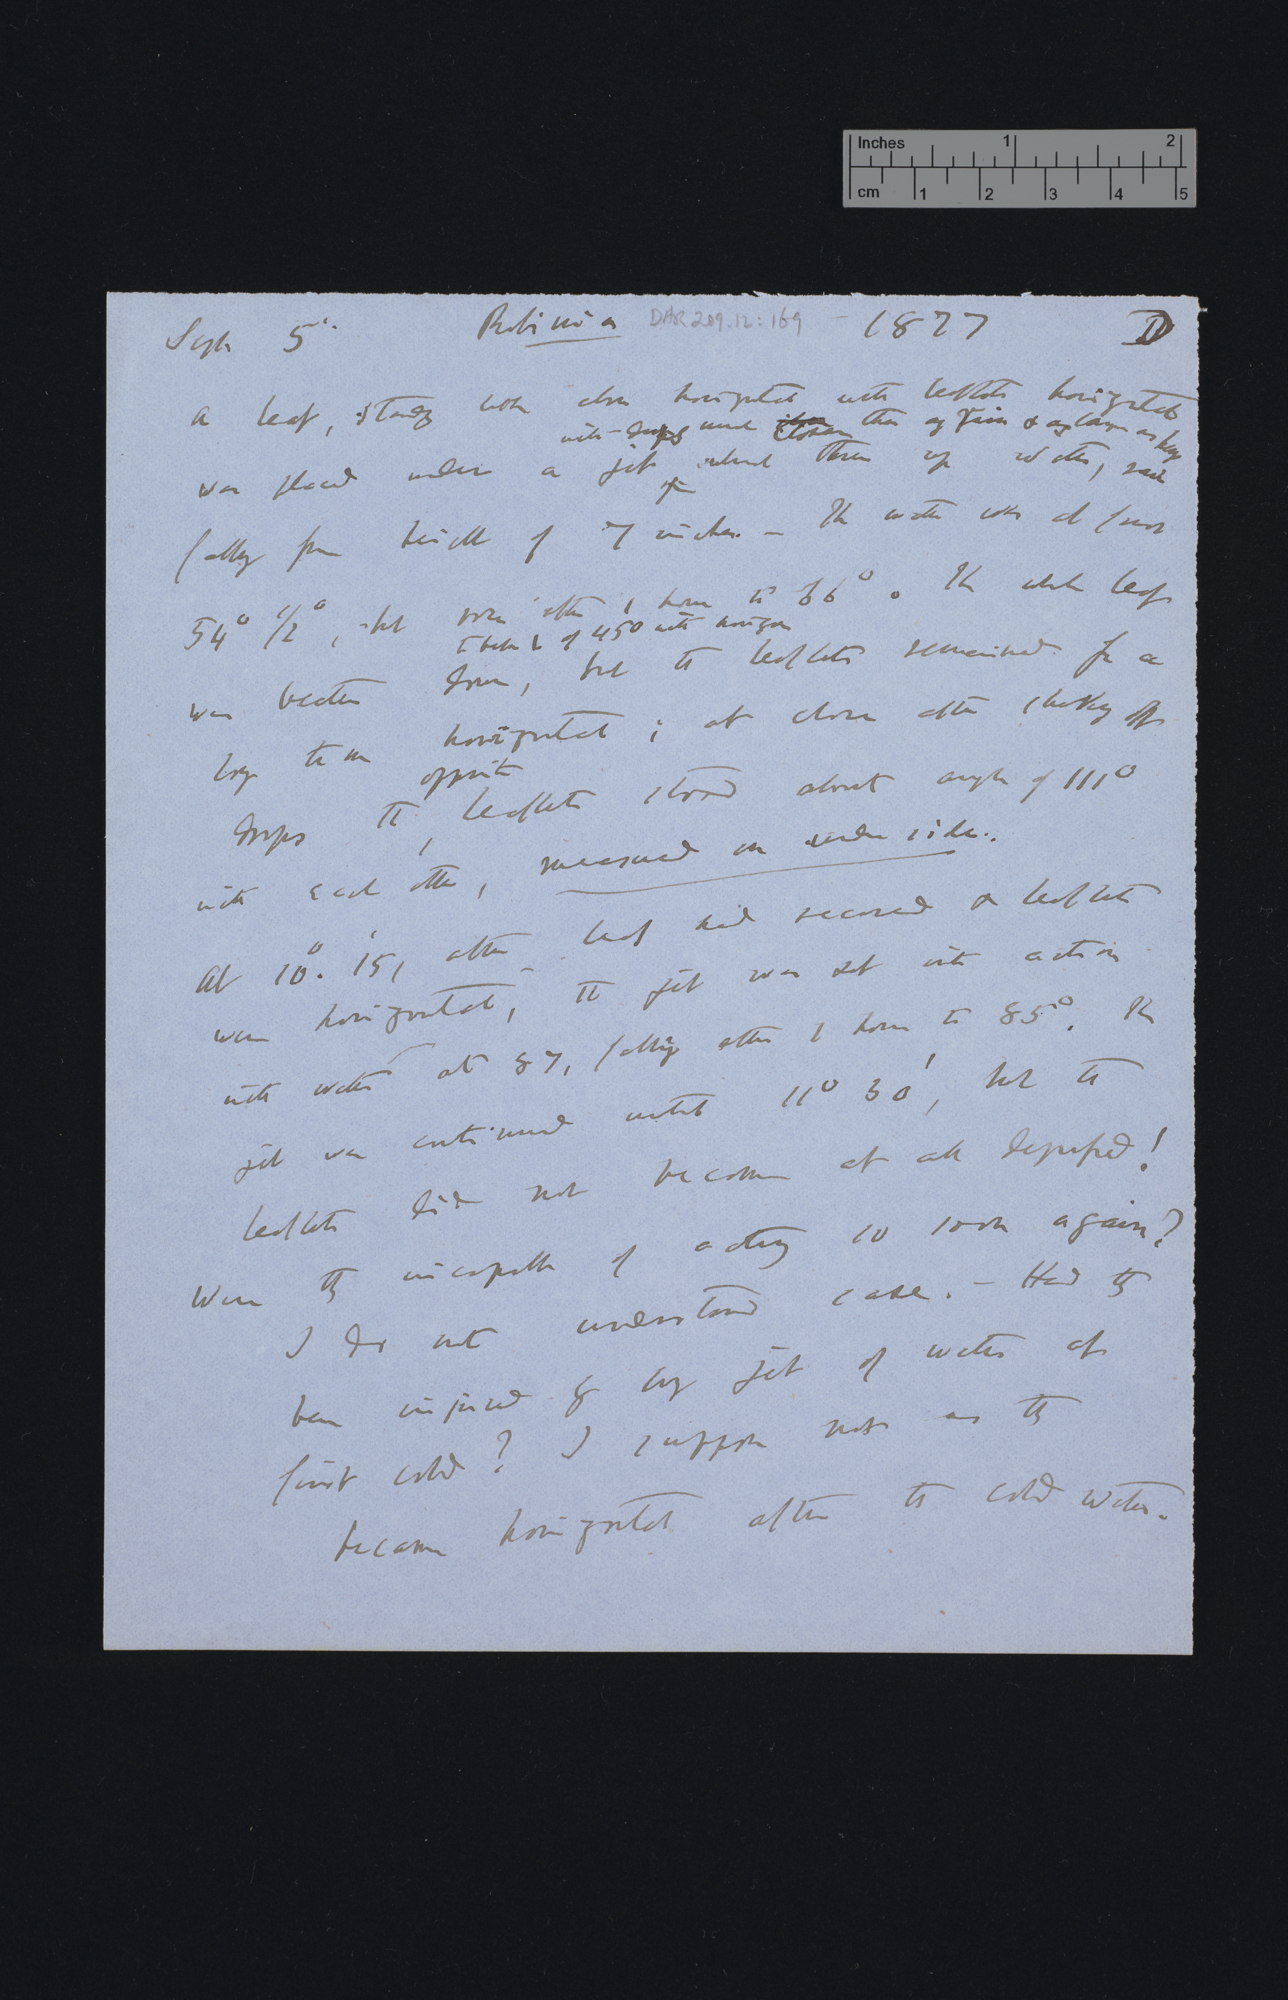 Inches 1 2
cm 1 2 3 4 5
Sept 5. Robinia DAR 209.12:169 – 1877 D
A leaf, standing when horizontal with leaflets horizontal
with drops much closer than of rain & as large as
was placed under a jet of water,
falling from height of 7 inches. — The water was at first
54° 1/2°, but rose after 1 hour to 66°. The whole leaf
to below L of 45° with horizon
was beaten down, but the leaflets remained for a
long time horizontal; at close after shaking off
opposite
drops the leaflets stood about angle of 111°
with each other, measured on under side.
At 10°. 15', after leaf had recovered & leaflets
were horizontal, the jet was set into action
with water at 87, falling after 1 hour to 85°. The
jet was continued until 11° 30', but the
leaflets did not become at all depressed!
Were they incapable of acting so soon again?
I do not understand case. — Had they
been injured by long jet of water at
first cold? I suppose not as they
became horizontal after the cold water.